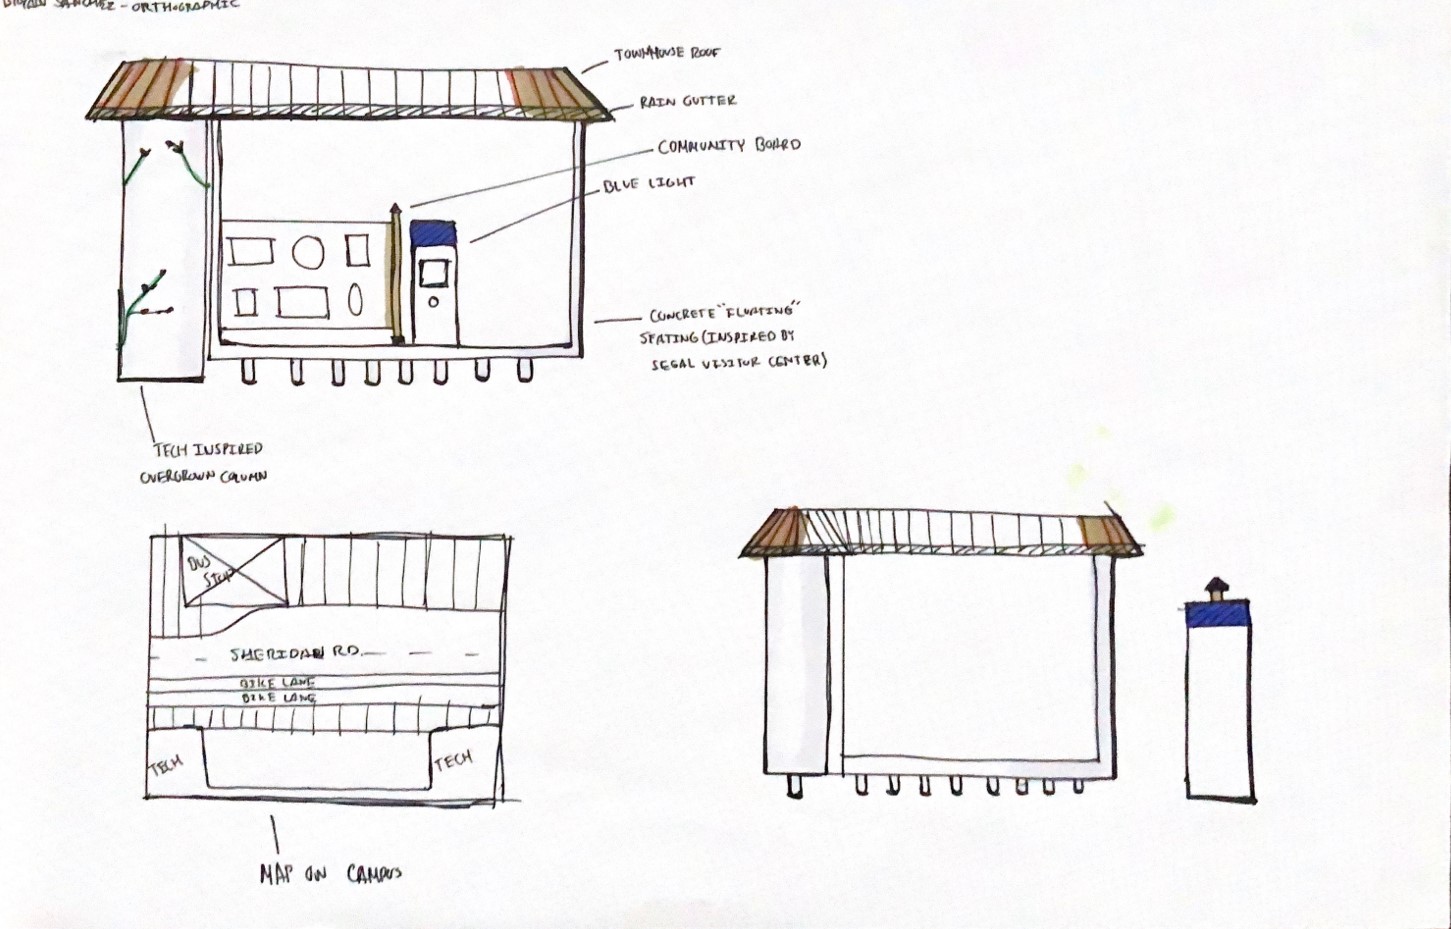 SANCHEZ - ORTHOGRAPHIC
TOWNHOUSE ROOF
RAIN GUTTER
COMMUNITY BOARD
BLUE LIGHT
CONCRETE "FLOATING"
SEATING (INSPIRED BY
SEGAL VISITOR CENTER)
TECH INSPIRED
OVERGROWN COLUMN
BUS
STOP
SHERIDAN RD.
BIKE LANE
BIKE LANE
TECH
TECH
MAP ON CAMPUS